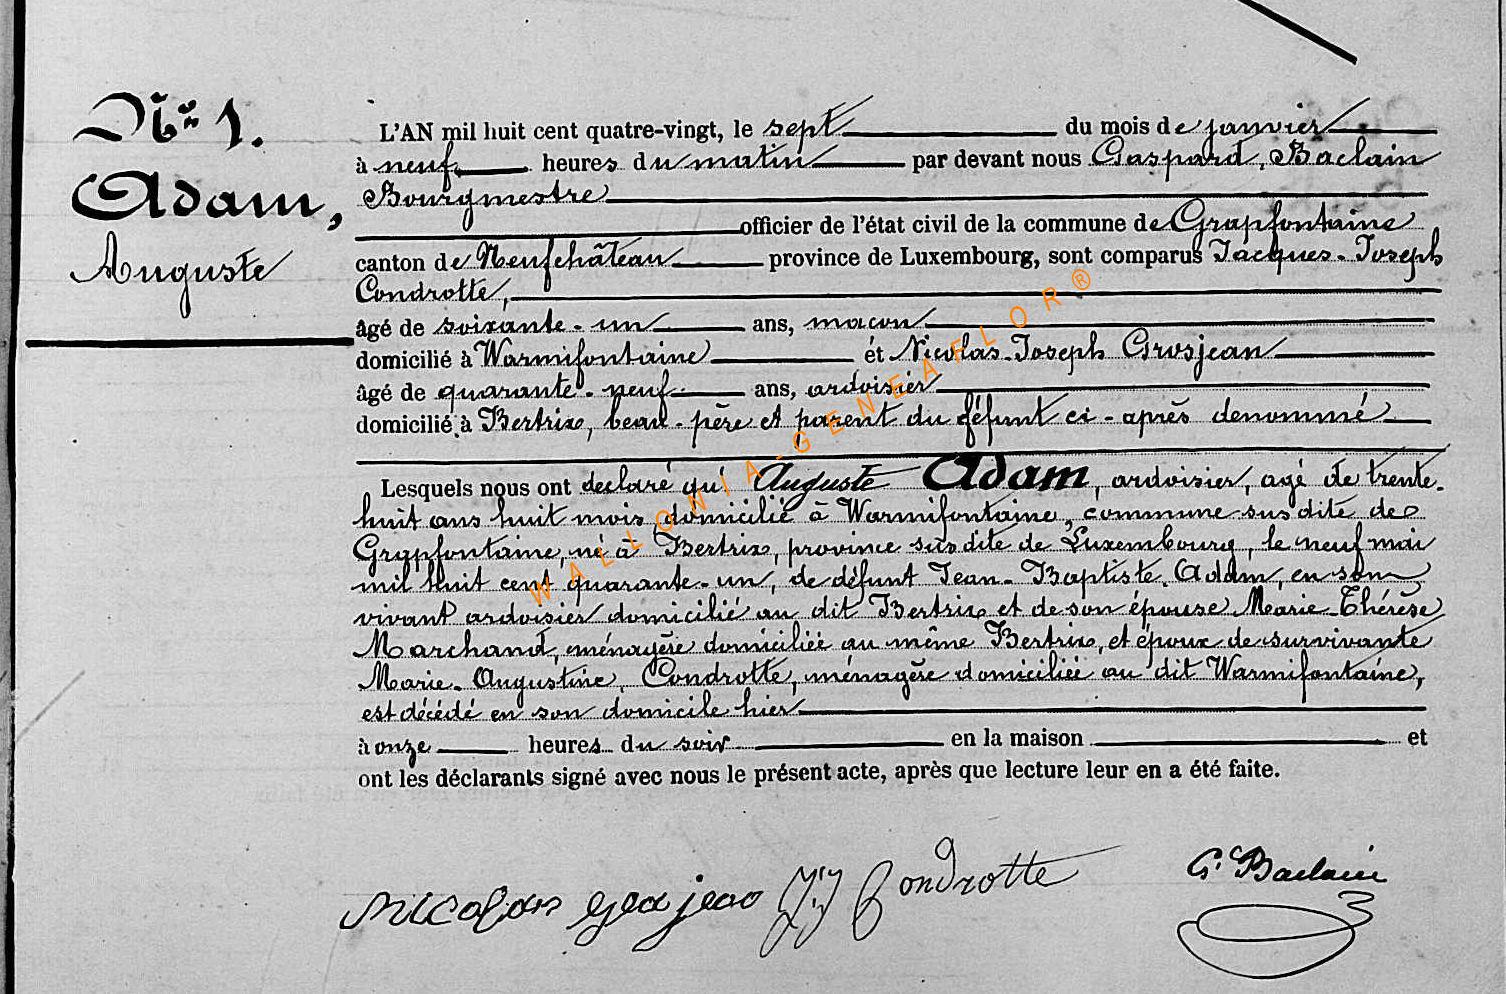 N° 1.
Adam,
Auguste
L'AN mil huit cent quatre-vingt, le sept du mois de janvier
à neuf heures du matin par devant nous Gaspard, Baclain
Bourgmestre
officier de l'état civil de la commune de Grapfontaine
canton de Neufchâteau province de Luxembourg, sont comparus Jacques-Joseph
Condrotte,
âgé de soixante-un ans, macon
domicilié à Warmifontaine ét Nicolas-Joseph Grosjean
âgé de quarante-neuf ans, ardoisier
domicilié à Bertrix, beau-père et parent du féfunt ci-après denommé
Lesquels nous ont declaré qu' Auguste Adam, ardoisier, agé de trente-
huit ans huit mois, domicilié à Warmifontaine, commune susdite de
Grapfontaine, né à Bertrix, province susdite de Luxembourg, le neuf mai
mil huit cent quarante-un, de défunt Jean-Baptiste Adam, en son
vivant ardoisier domicilié au dit Bertrix et de son épouse Marie-Thérèse
Marchand, ménagère domiciliée au même Bertrix, et époux de survivante
Marie-Augustine, Condrotte, ménagère domiciliée au dit Warmifontaine,
est décédé en son domicile hier
à onze heures du soir en la maison et
ont les déclarants signé avec nous le présent acte, après que lecture leur en a été faite.
Nicolas Grosjean J.J. Condrotte G. Baclain
WALLONIA-GENEAFLOR®